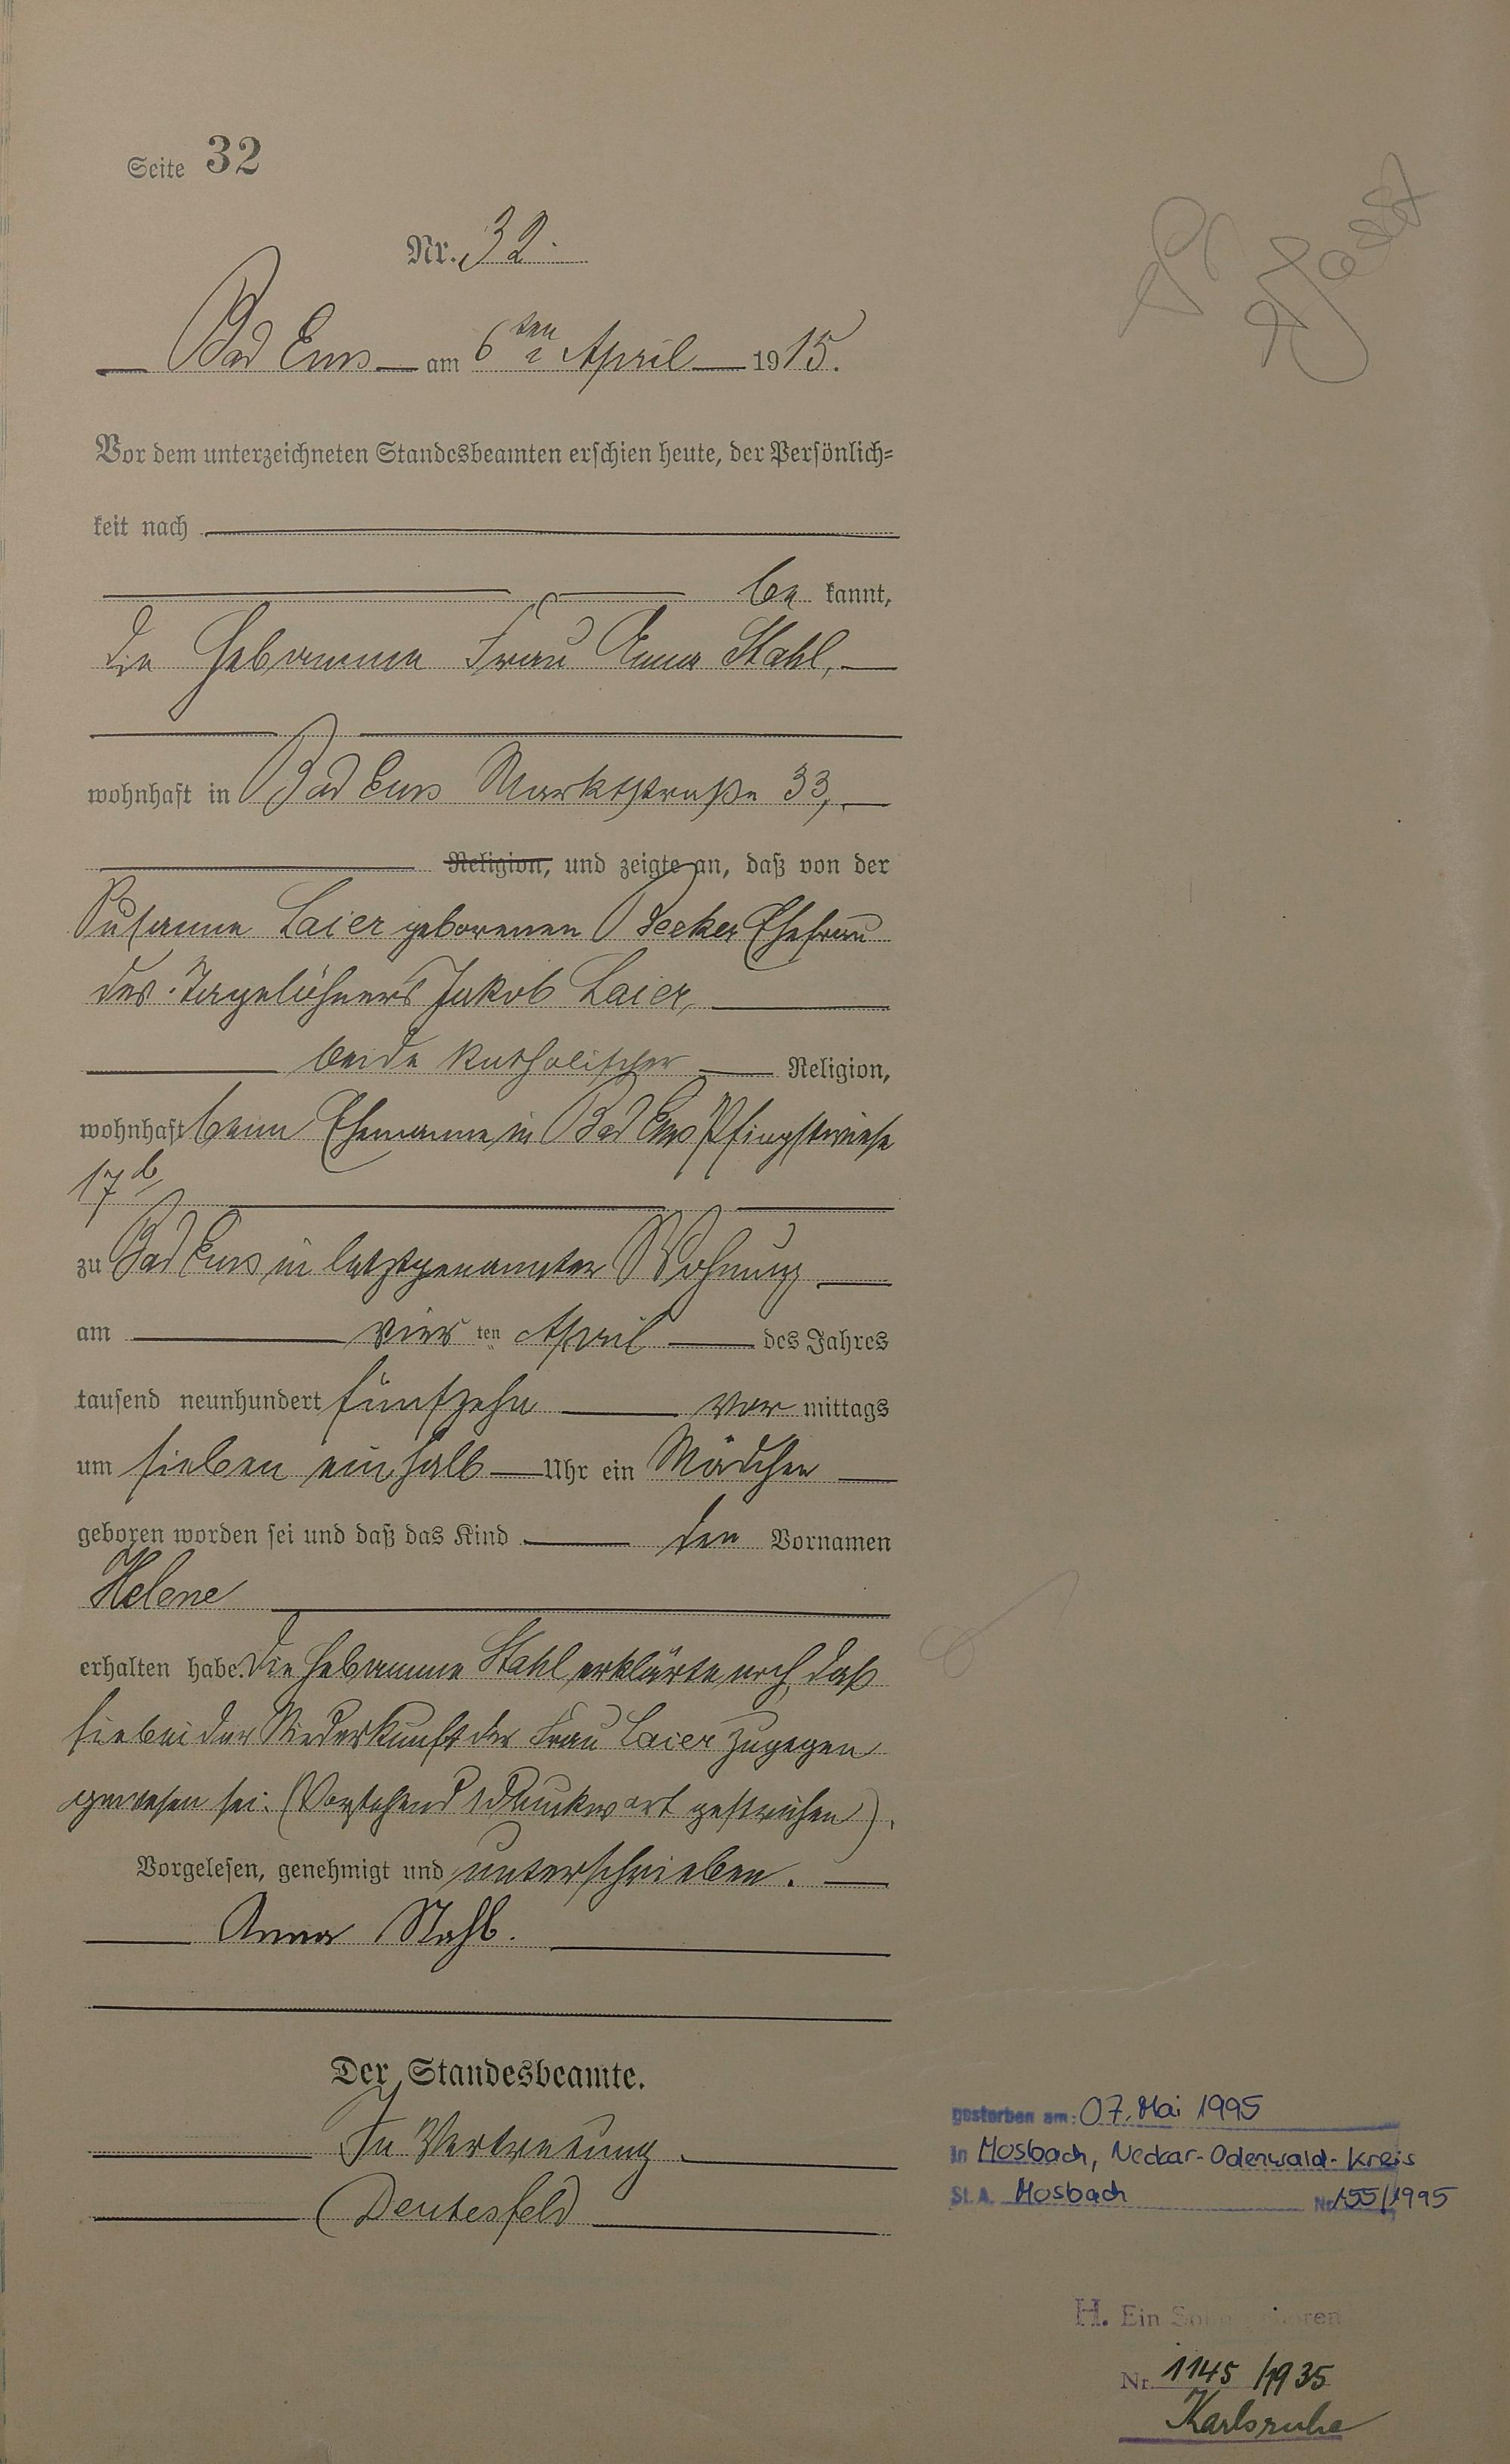 Seite 32
Nr. 32.
Bad Ems am 6ten April 1915.
Vor dem unterzeichneten Standesbeamten erschien heute, der Persönlich=
keit nach
be kannt,
die Hebamme Frau Anna Stahl,
wohnhaft in Bad Ems Marktstraße 33,
Religion, und zeigte an, daß von der
Susanna Laier geborenen Becker Ehefrau
des Tagelöhners Jakob Laier,
beide katholischer Religion,
wohnhaft beim Ehemanne in Bad Ems Pfingstwiese
17b,
zu Bad Ems in letztgenannter Wohnung
am vier ten April des Jahres
tausend neunhundert fünfzehn vor mittags
um sieben einhalb Uhr ein Mädchen
geboren worden sei und daß das Kind den Vornamen
Helene
erhalten habe. Die Hebamme Stahl erklärte noch, daß
sie bei der Niederkunft der Frau Laier zugegen
gewesen sei. (Vorstehend 1 Druckwort gestrichen).
Vorgelesen, genehmigt und unterschrieben.
Anna Stahl.
Der Standesbeamte.
In Vertretung
Deutesfeld
gestorben am: 07. Mai 1995
in Mosbach, Neckar-Odenwald-Kreis
St.A. Mosbach Nr. 155/1995
H. Ein Sohn geboren
Nr. 1145/1935
Karlsruhe